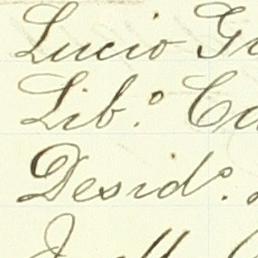 Lucio G
Lib.º Ca
Desid.º